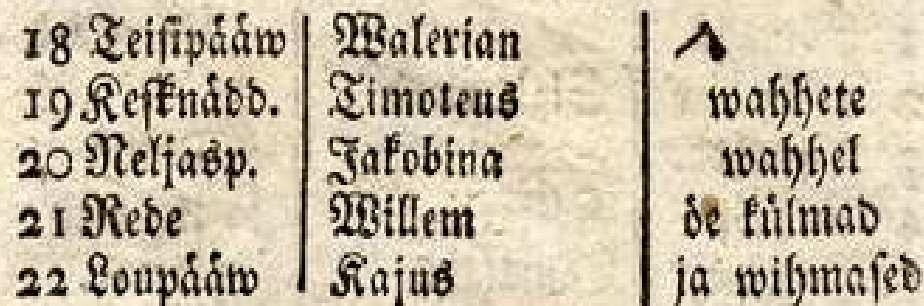 18 Teisipääw Walerian
19 Kesknädd. Timoteus wahhete
20 Neljasp. Jakobina wahhel
21 Rede Willem öe külmad
22 Loupääw Kajus ja wihmased